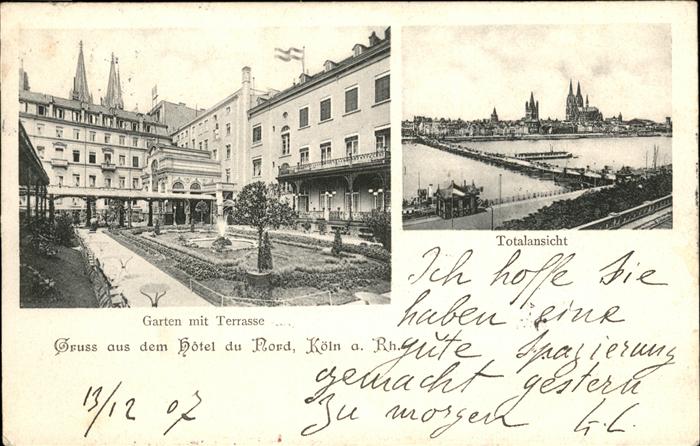 Totalansicht
Garten mit Terrasse
Gruss aus dem Hôtel du Nord, Köln a. Rh.
Ich hoffe Sie
haben eine
gute Spazierung
gemacht gestern
zu morgen G. C.
13/12 07